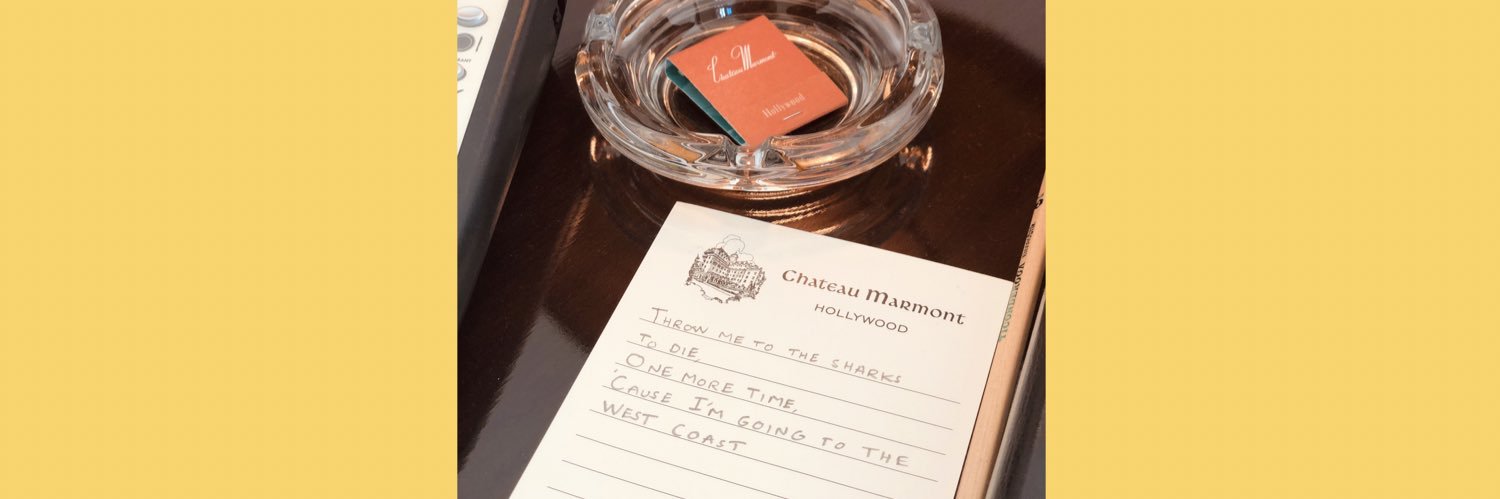 Chateau Marmont
Hollywood
Chateau Marmont
HOLLYWOOD
THROW ME TO THE SHARKS
TO DIE,
ONE MORE TIME,
'CAUSE I'M GOING TO THE
WEST COAST